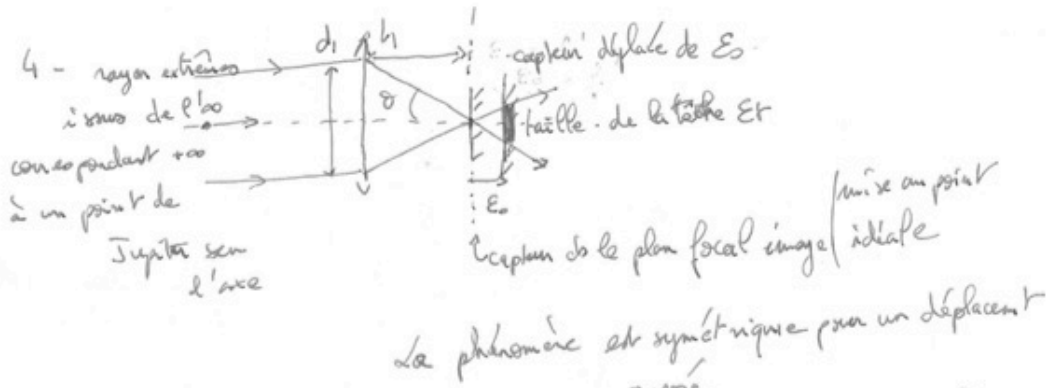 4 - rayon extrêmes
issus de l'∞
correspondant +∞
à un point de
Jupiter sur
l'axe
d₁
L₁
γ
capteur déplacé de ε₀
taille de la tâche εr
ε₀
capteur ds le plan focal image / mise au point
idéale
Le phénomène est symétrique pour un déplacement